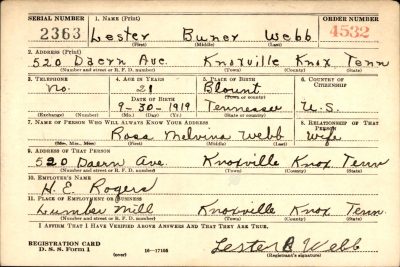 SERIAL NUMBER 1. NAME (Print) ORDER NUMBER
2363 Lester Buner Webb 4532
(First) (Middle) (Last)
2. ADDRESS (Print)
520 Daern Ave. Knoxville Knox Tenn
(Number and street or R. F. D. number) (Town) (County) (State)
3. TELEPHONE 4. AGE IN YEARS 5. PLACE OF BIRTH 6. COUNTRY OF CITIZENSHIP
No. 21 Blount
DATE OF BIRTH (Town or county)
9-30-1919 Tennessee U.S.
(Exchange) (Number) (Mo.) (Day) (Yr.) (State or country)
7. NAME OF PERSON WHO WILL ALWAYS KNOW YOUR ADDRESS 8. RELATIONSHIP OF THAT PERSON
Rosa Melvina Webb Wife
(Mr., Mrs., Miss) (First) (Middle) (Last)
9. ADDRESS OF THAT PERSON
520 Daern Ave Knoxville Knox Tenn
(Number and street or R. F. D. number) (Town) (County) (State)
10. EMPLOYER'S NAME
H. E. Rogers
11. PLACE OF EMPLOYMENT OR BUSINESS
Lumber Mill Knoxville Knox Tenn.
(Number and street or R. F. D. number) (Town) (County) (State)
I AFFIRM THAT I HAVE VERIFIED ABOVE ANSWERS AND THAT THEY ARE TRUE.
REGISTRATION CARD Lester B Webb
D. S. S. Form 1 (over) 16—17105 (Registrant's signature)